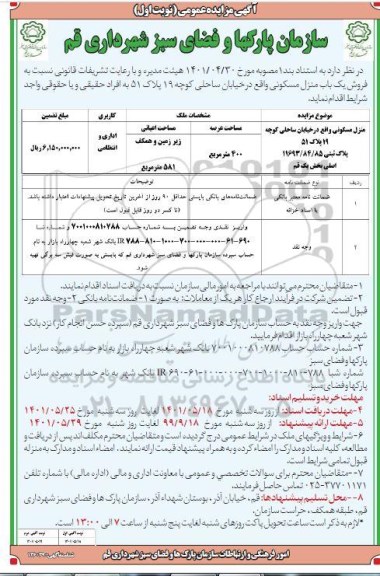 آگهی مزایده عمومی (نوبت اول)
سازمان پارکها و فضای سبز شهرداری قم
در نظر دارد به استناد بند۱مصوبه مورخ ۱۴۰۱/۰۴/۳۰ هیئت مدیره و با رعایت تشریفات قانونی نسبت به
فروش یک باب منزل مسکونی واقع درخیابان ساحلی کوچه ۱۹ پلاک ۵۱ به افراد حقیقی و یا حقوقی واجد
شرایط اقدام نماید.
موضوع مزایده
مشخصات ملک
کاربری
مبلغ تضمین
مساحت عرصه
مساحت اعیانی
منزل مسکونی واقع درخیابان ساحلی کوچه
۱۹ پلاک ۵۱
پلاک ثبتی ۱۱۶۹۳/۸۴/۸۵
اصلی بخش یک قم
۴۰۰ مترمربع
زیر زمین و همکف
۵۸۱ مترمربع
اداری و
انتظامی
۶،۱۵۰،۰۰۰،۰۰۰ ریال
ردیف
نوع ضمانت نامه
توضیحات
۱
ضمانت نامه معتبر بانکی
یا اسناد خزانه
ضمانتنامه‌های بانکی بایستی حداقل ۹۰ روز از آخرین تاریخ تحویل پیشنهادات اعتبار داشته باشد.
(تا کسر دو روز قابل قبول است)
۲
وجه نقد
واریز نقدی وجه تضمین به شماره حساب ۷۰۰۱۰۰۰۸۱۰۷۸۸ و شماره شبا
بانک شهر شعبه چهارراه بازار به نام
حساب سپرده سازمان پارکها و فضای سبز شهرداری قم که بایستی به صورت فیش سه برگی تهیه
شود
۱-متقاضیان محترم می‌توانند با مراجعه به امور مالی سازمان نسبت به دریافت اسناد اقدام نمایند.
۲-تضمین شرکت در فرآیند ارجاع کار هر یک از معاملات: به صورت ۱-ضمانت نامه بانکی ۲-وجه نقد مورد
قبول است.
جهت واریز وجه نقد به حساب سازمان پارک ها و فضای سبز شهرداری قم (سپرده حسن انجام کار) نزد بانک
شهر شعبه چهارراه بازار اقدام فرمایید.
۳-شماره حساب ۷۰۰۱۰۰۰۸۱۰۷۸۸ بانک شهر شعبه چهارراه بازار به نام حساب سپرده سازمان
پارکها و فضای سبز
بانک شهر به نام حساب سپرده سازمان
پارکها و فضای سبز
مهلت خرید و تسلیم اسناد:
۴-مهلت دریافت اسناد: از روز سه شنبه مورخ ۱۴۰۱/۰۵/۱۸ لغایت روز سه شنبه مورخ ۱۴۰۱/۰۵/۲۵
۵-مهلت ارائه پیشنهاد: از روز سه شنبه مورخ ۹۹/۹/۱۸ لغایت روز شنبه مورخ ۱۴۰۱/۰۵/۲۹
۶-شرایط و ویژگیهای ملک در شرایط عمومی درج گردیده است و متقاضیان محترم مکلف‌اند پس از دریافت و
مطالعه، کلیه اسناد و مدارک را امضاء کرده و به همراه پیشنهاد قیمت ارائه نمایند. امضاء اسناد و مدارک به منزله
قبول تمامی شرایط است.
۷-متقاضیان محترم برای سوالات تخصصی و عمومی با معاونت اداری و مالی (اداره مالی) با شماره تلفن
۰۲۵-۳۷۷۰۱۱۷۱ تماس حاصل فرمایند.
۸-محل تسلیم پیشنهادها: قم، خیابان آذر، بوستان شهداء آذر، سازمان پارک ها و فضای سبز شهرداری
قم، طبقه همکف، حراست سازمان.
*لازم به ذکر است ساعت تحویل پاکت روزهای شنبه لغایت پنج شنبه از ساعت ۷ الی ۱۳:۰۰ است.
امور فرهنگی و ارتباطات سازمان پارک ها و فضای سبز شهرداری قم
ParsNamadData